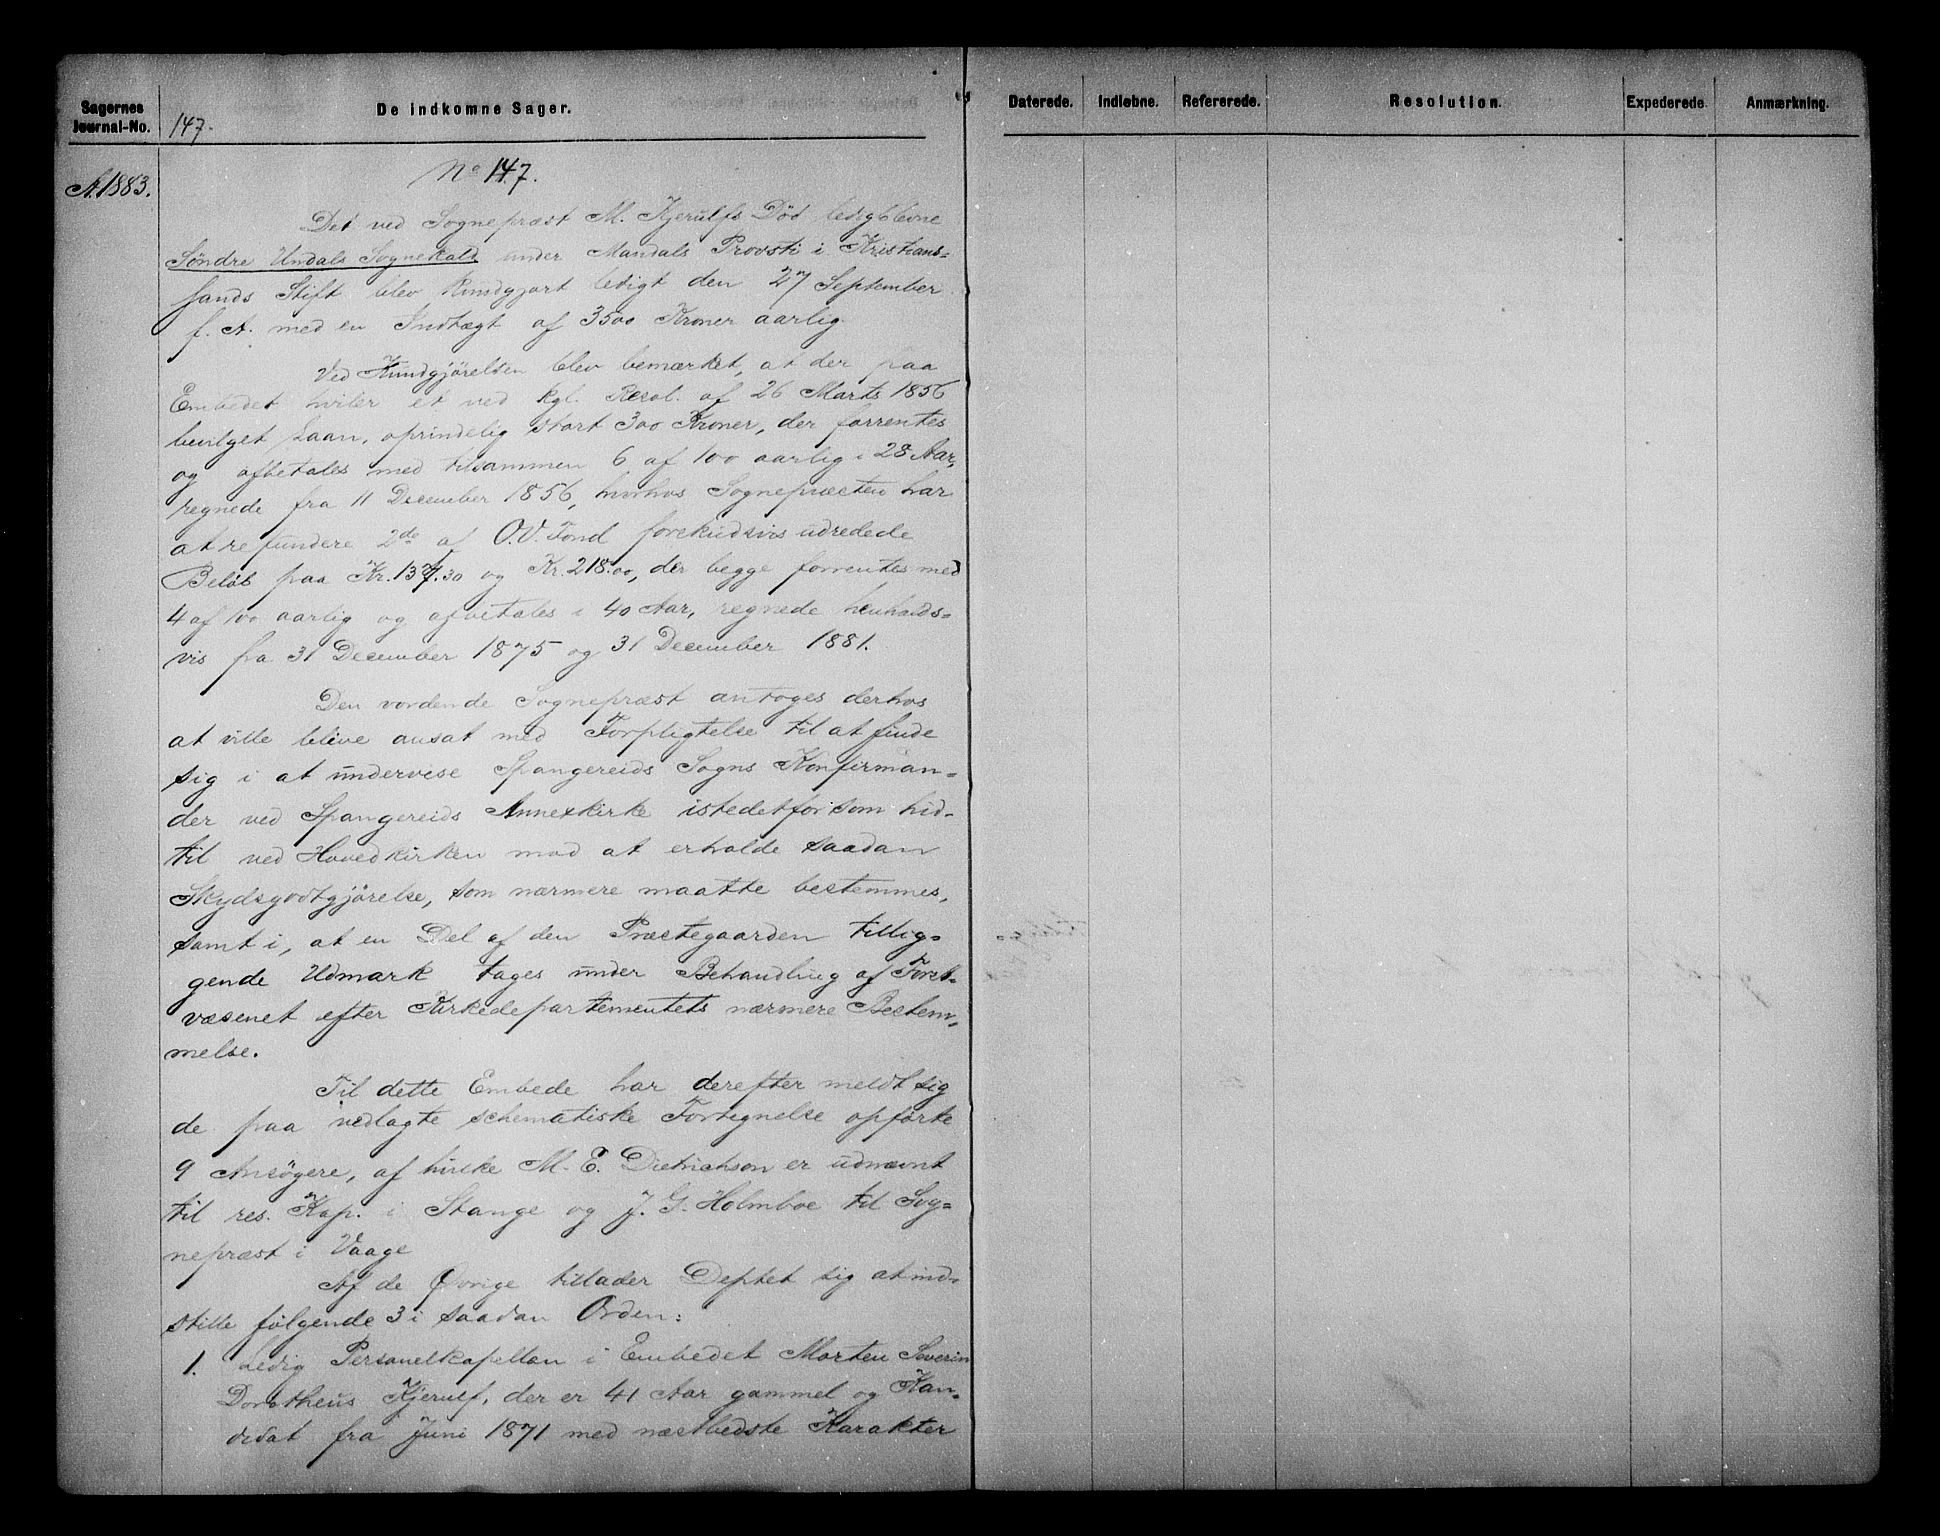 Sagernes
Journal-No.
De indkomne Sager.
147.
Daterede.
Indløbne.
Refererede.
Resolution.
Expederede.
Anmærkning.
A. 1883.
No 147.
Det ved Sognepræst M. Kjerulfs Död ledigblevne
Söndre Undals Sognekald under Mandals Provsti i Kristians-
sands Stift blev kundgjort ledigt den 27 September
f. A. med en Indtægt af 3500 Kroner aarlig.
Ved Kundgjörelsen blev bemærket, at der paa
Embedet hviler et ved kgl. Resol. af 26 Marts 1856
bevilget Laan, oprindelig stort 300 Kroner, der forrentes
og afbetales med tilsammen 6 af 100 aarlig i 28 Aar,
regnede fra 11 December 1856, hvorhos Sognepræsten har
at refundere 2de af O.V. Fond forskudsvis udredede
Belöb paa Kr. 137.30 og Kr. 218.00, der begge forrentes med
4 af 100 aarlig og afbetales i 40 Aar, regnede henholds-
vis fra 31 December 1875 og 31 December 1881.
Den vordende Sognepræst antoges derhos
at ville blive ansat med Forpligtelse til at finde
sig i at undervise Spangereids Sogns Konfirman-
der ved Spangereids Annexkirke istedetfor som hid-
til ved Hovedkirken mod at erholde saadan
Skydsgodtgjörelse, som nærmere maatte bestemmes,
samt i, at en Del af den Præstegaarden tillig-
gende Udmark tages under Behandling af Forst-
væsenet efter Kirkedepartementets nærmere Bestem-
melse.
Til dette Embede har derefter meldt sig
de paa vedlagte schematiske Fortegnelse opförte
9 Ansögere, af hvilke M. E. Dietrichson er udnævnt
til res. Kap. i Stange og J. G. Holmboe til Sog-
nepræst i Vaage
Af de Övrige tillader Deptet sig at ind-
stille fölgende 3 i saadan Orden:
1. Ledig Personelkapellan i Embedet Morten Severin
Dorotheus Kjerulf, der er 41 Aar gammel og Kan-
didat fra Juni 1871 med næstbedste Karakter